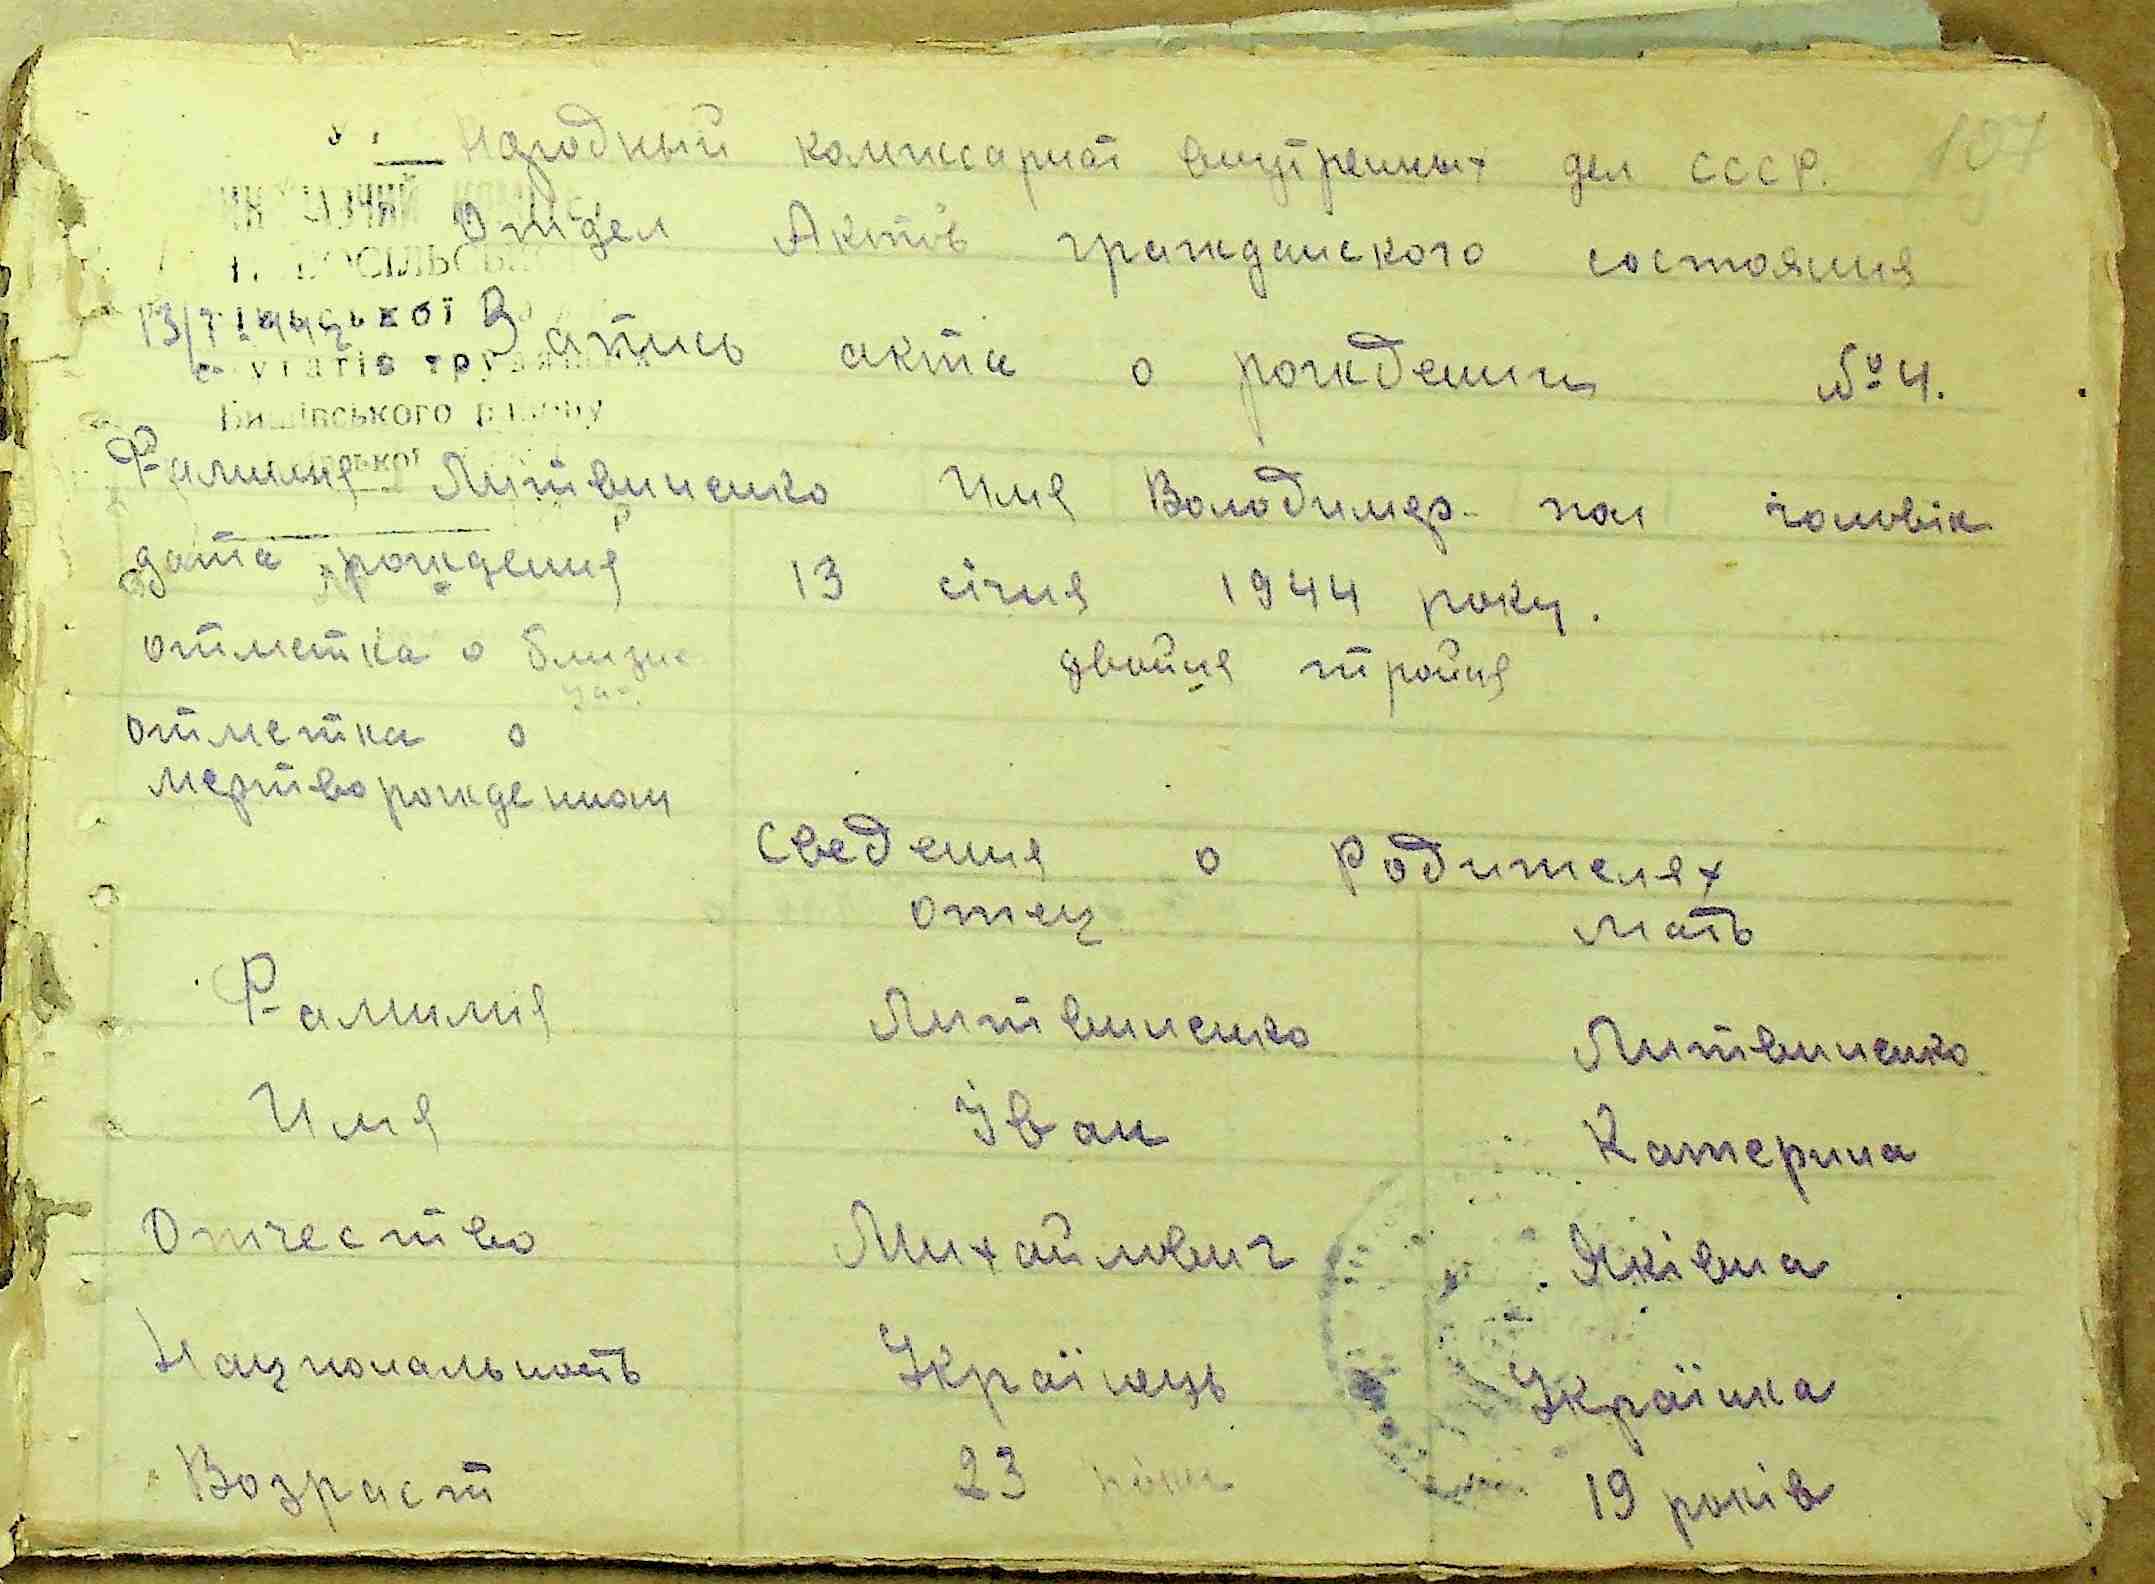 107
Народный комиссариат внутренных дел СССР.
Отдел Актов гражданского состояния
Запись акта о рождении № 4.
Фамилия Литвиненко Имя Володимер пол чоловік
дата рождения 13 січня 1944 року.
отметка о близне двойня тройня
отметка о
мертворожденном
Сведения о Родителях
отец мать
Фамилия Литвиненко Литвиненко
Имя Іван Катерина
Отчество Михайлович Яківна
Национальность Українець Українка
Возраст 23 роки 19 років